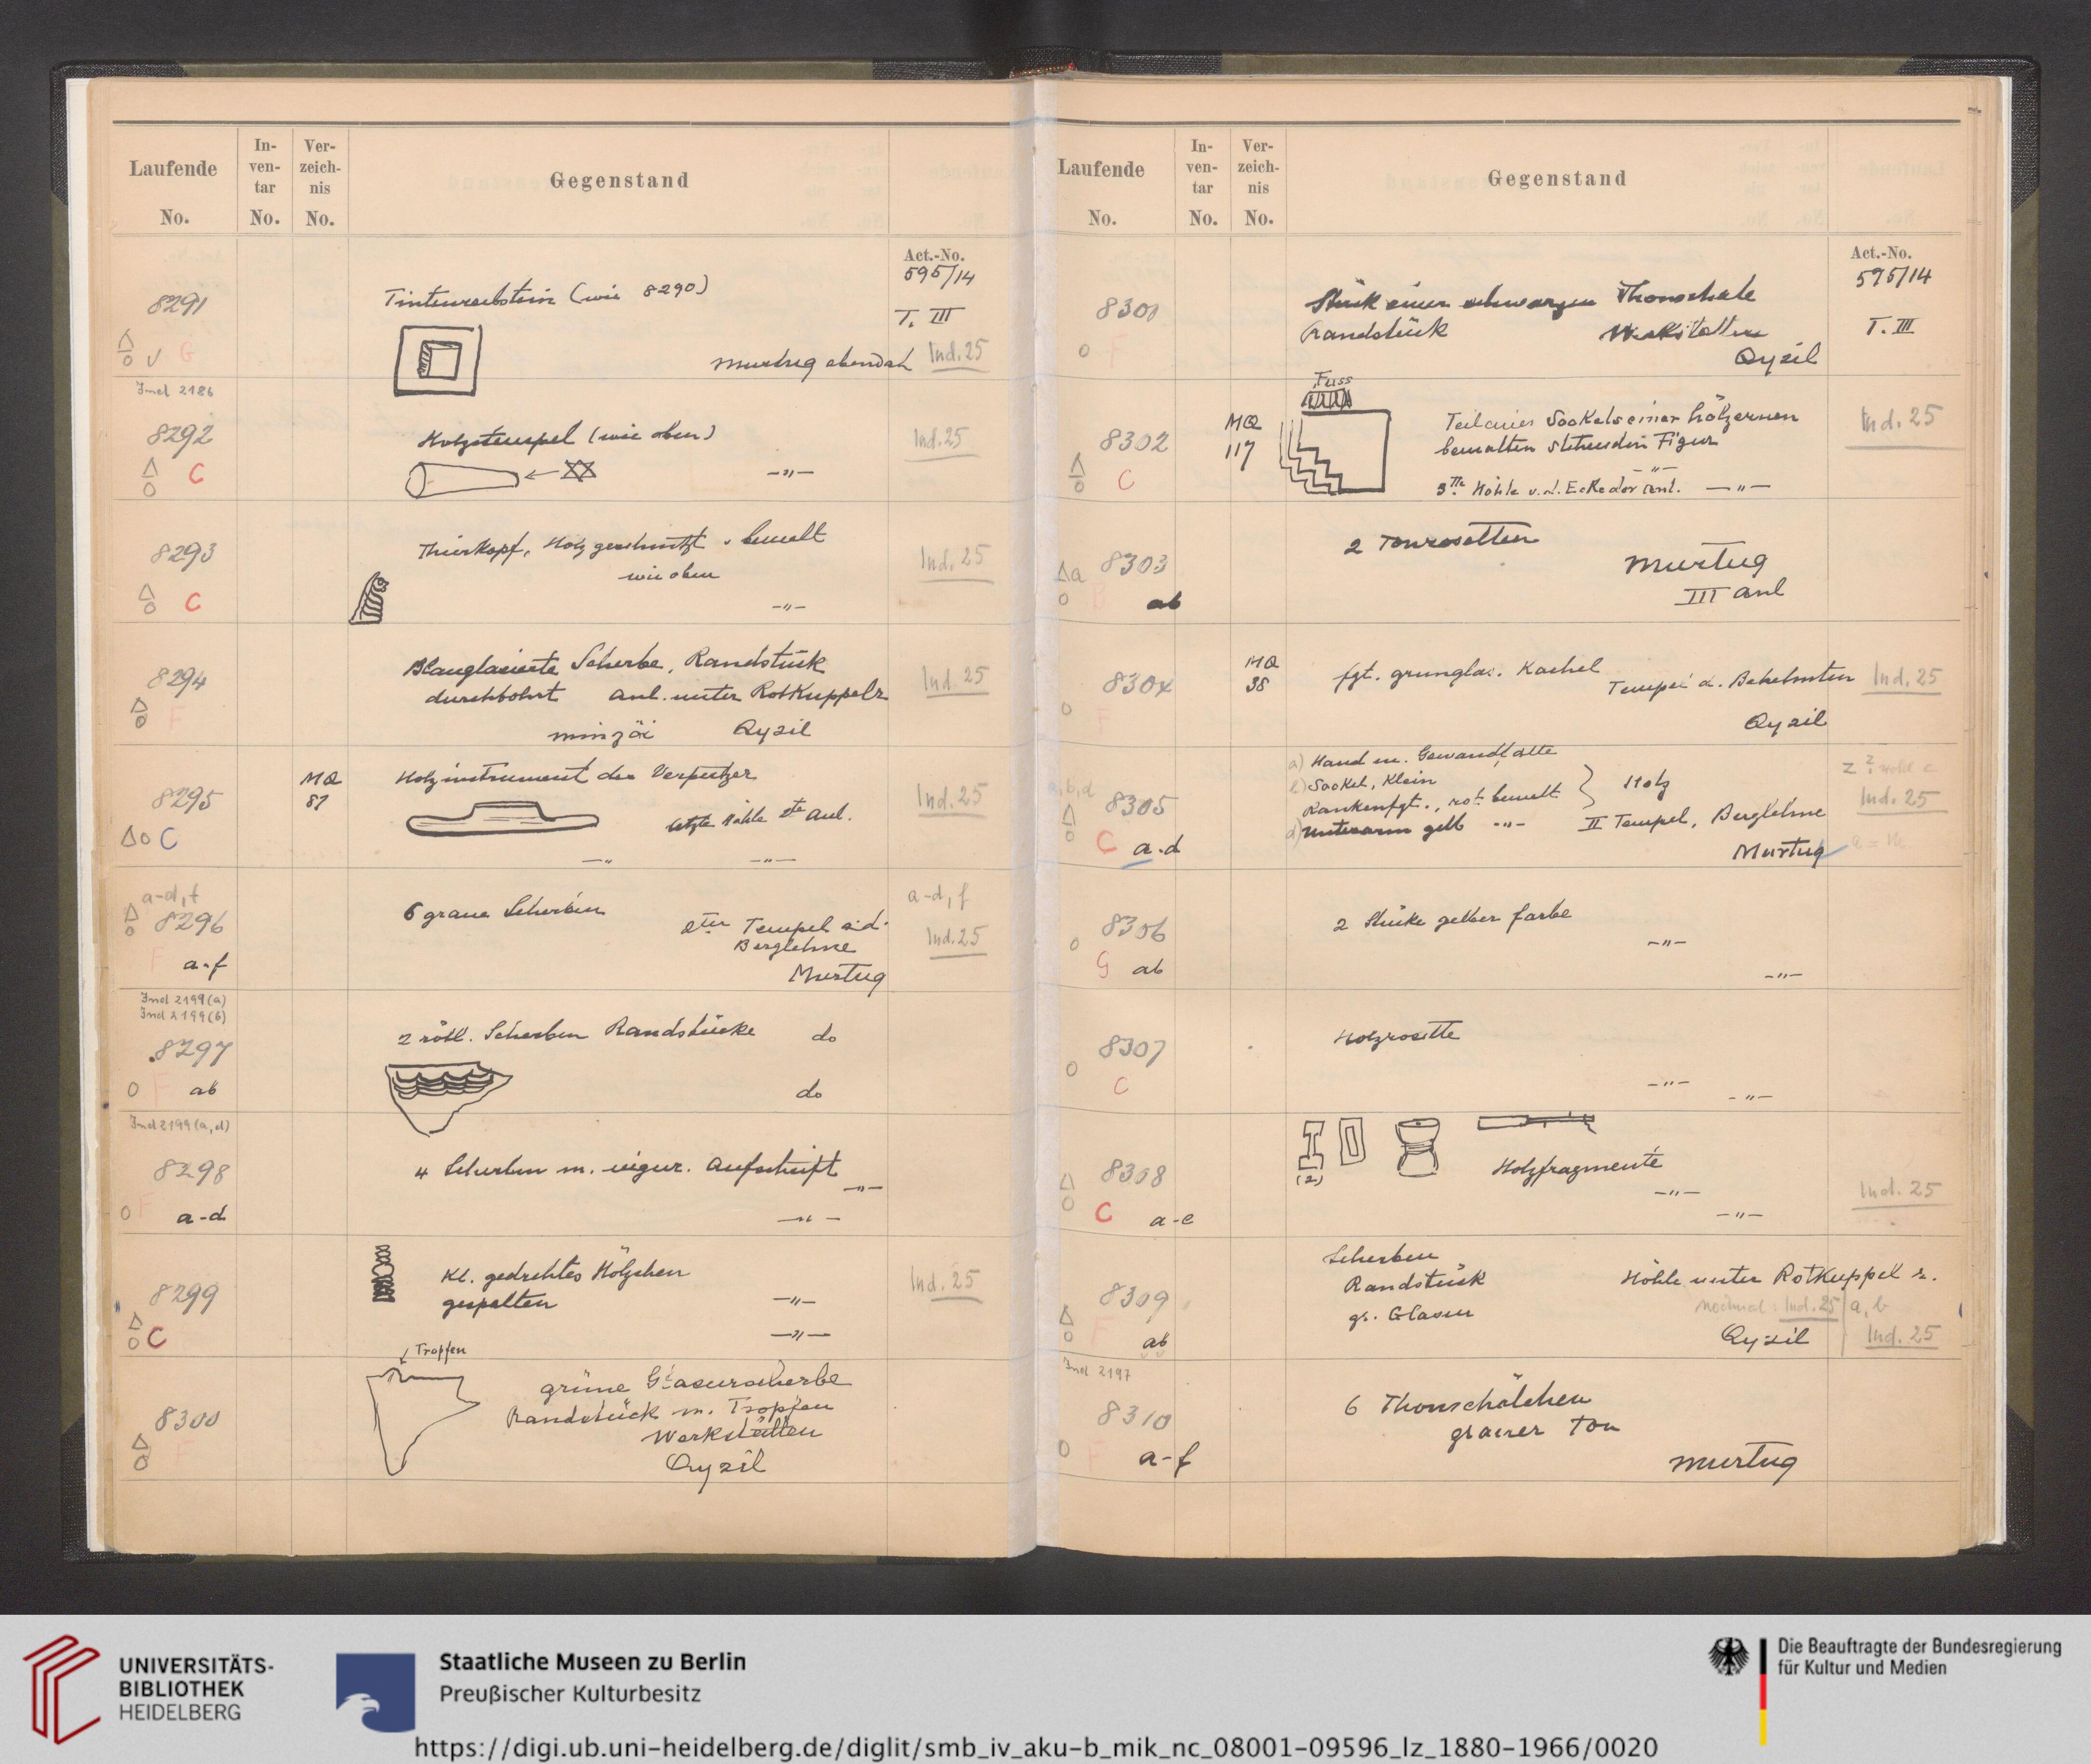 Laufende No.
In-ven-tar No.
Ver-zeich-nis No.
Gegenstand
Act.-No.
595/14
T. III
8291
Tintenreibstein (wie 8290)
Murtug ebendah
Ind. 25
V G
Jnd 2186
8292
Holzstempel (wie oben)
Ind. 25
C
—"—
8293
Thierkopf, Holz geschnitzt u bemalt
wie oben
Ind. 25
C
—"—
8294
Blauglasierte Scherbe, Randstück
durchbohrt anl. unter Rotkuppelr
Ind. 25
F
mingöi Qyzil
8295
MQ
87
Holzinstrument der Verputzer
letzte Höhle 2te Anl.
Ind. 25
C
—"— —"—
a-d, f
8296
6 graue Scherben
2ter Tempel a.d.
Berglehne
Murtug
a-d, f
Ind. 25
F a-f
Jnd 2199 (a)
Jnd 2199 (b)
8297
2 rötl. Scherben Randstücke do
F ab
do
Jnd 2199 (a, d)
8298
4 Scherben m. uigur. Aufschrift
—"—
F a-d
—"—
8299
Kl. gedrehtes Hölzchen
gespalten —"—
Ind. 25
C
—"—
Tropfen
8300
grüne Glasurscherbe
Randstück m. Tropfen
Werkstätten
Qyzil
F
Laufende No.
In-ven-tar No.
Ver-zeich-nis No.
Gegenstand
Act.-No.
595/14
T. III
8301
Stück einer schwarzen Thonschale
Randstück Werkstätten
Qyzil
F
Fuss
8302
MQ
117
Teil eines Sockels einer hölzernen
bemalten stehenden Figur
—"—
3te Höhle v. d. Ecke der Anl. —"—
Ind. 25
C
8303
2 Tonrosetten
Murtug
III Anl
a
B ab
8304
MQ
38
fgt. grünglas. Kachel
Tempel d. Behelmten
Ind. 25
F
Qyzil
a, b, d
8305
a) Hand m. Gewandfalte
b) Sockel, Klein
Rankenfgt., rot bemalt
Holz
d) Unterarm gelb —"— II Tempel, Berglehne
Murtuq
Ind. 25
C a-d
8306
2 Stücke gelber Farbe
—"—
G ab
—"—
8307
Holzrosette
C
—"—
—"—
8308
(2)
Holzfragmente
—"—
Ind. 25
C a-e
—"—
8309
Scherben
Randstück
gr. Glasur
Höhle unter Rotkuppel r.
nochmal: Ind. 25 a, b
Qyzil
Ind. 25
F ab
Jnd 2197
8310
6 Thonschälchen
grauer Ton
Murtug
F a-f
UNIVERSITÄTS-
BIBLIOTHEK
HEIDELBERG
Staatliche Museen zu Berlin
Preußischer Kulturbesitz
Die Beauftragte der Bundesregierung
für Kultur und Medien
https://digi.ub.uni-heidelberg.de/diglit/smb_iv_aku-b_mik_nc_08001-09596_lz_1880-1966/0020